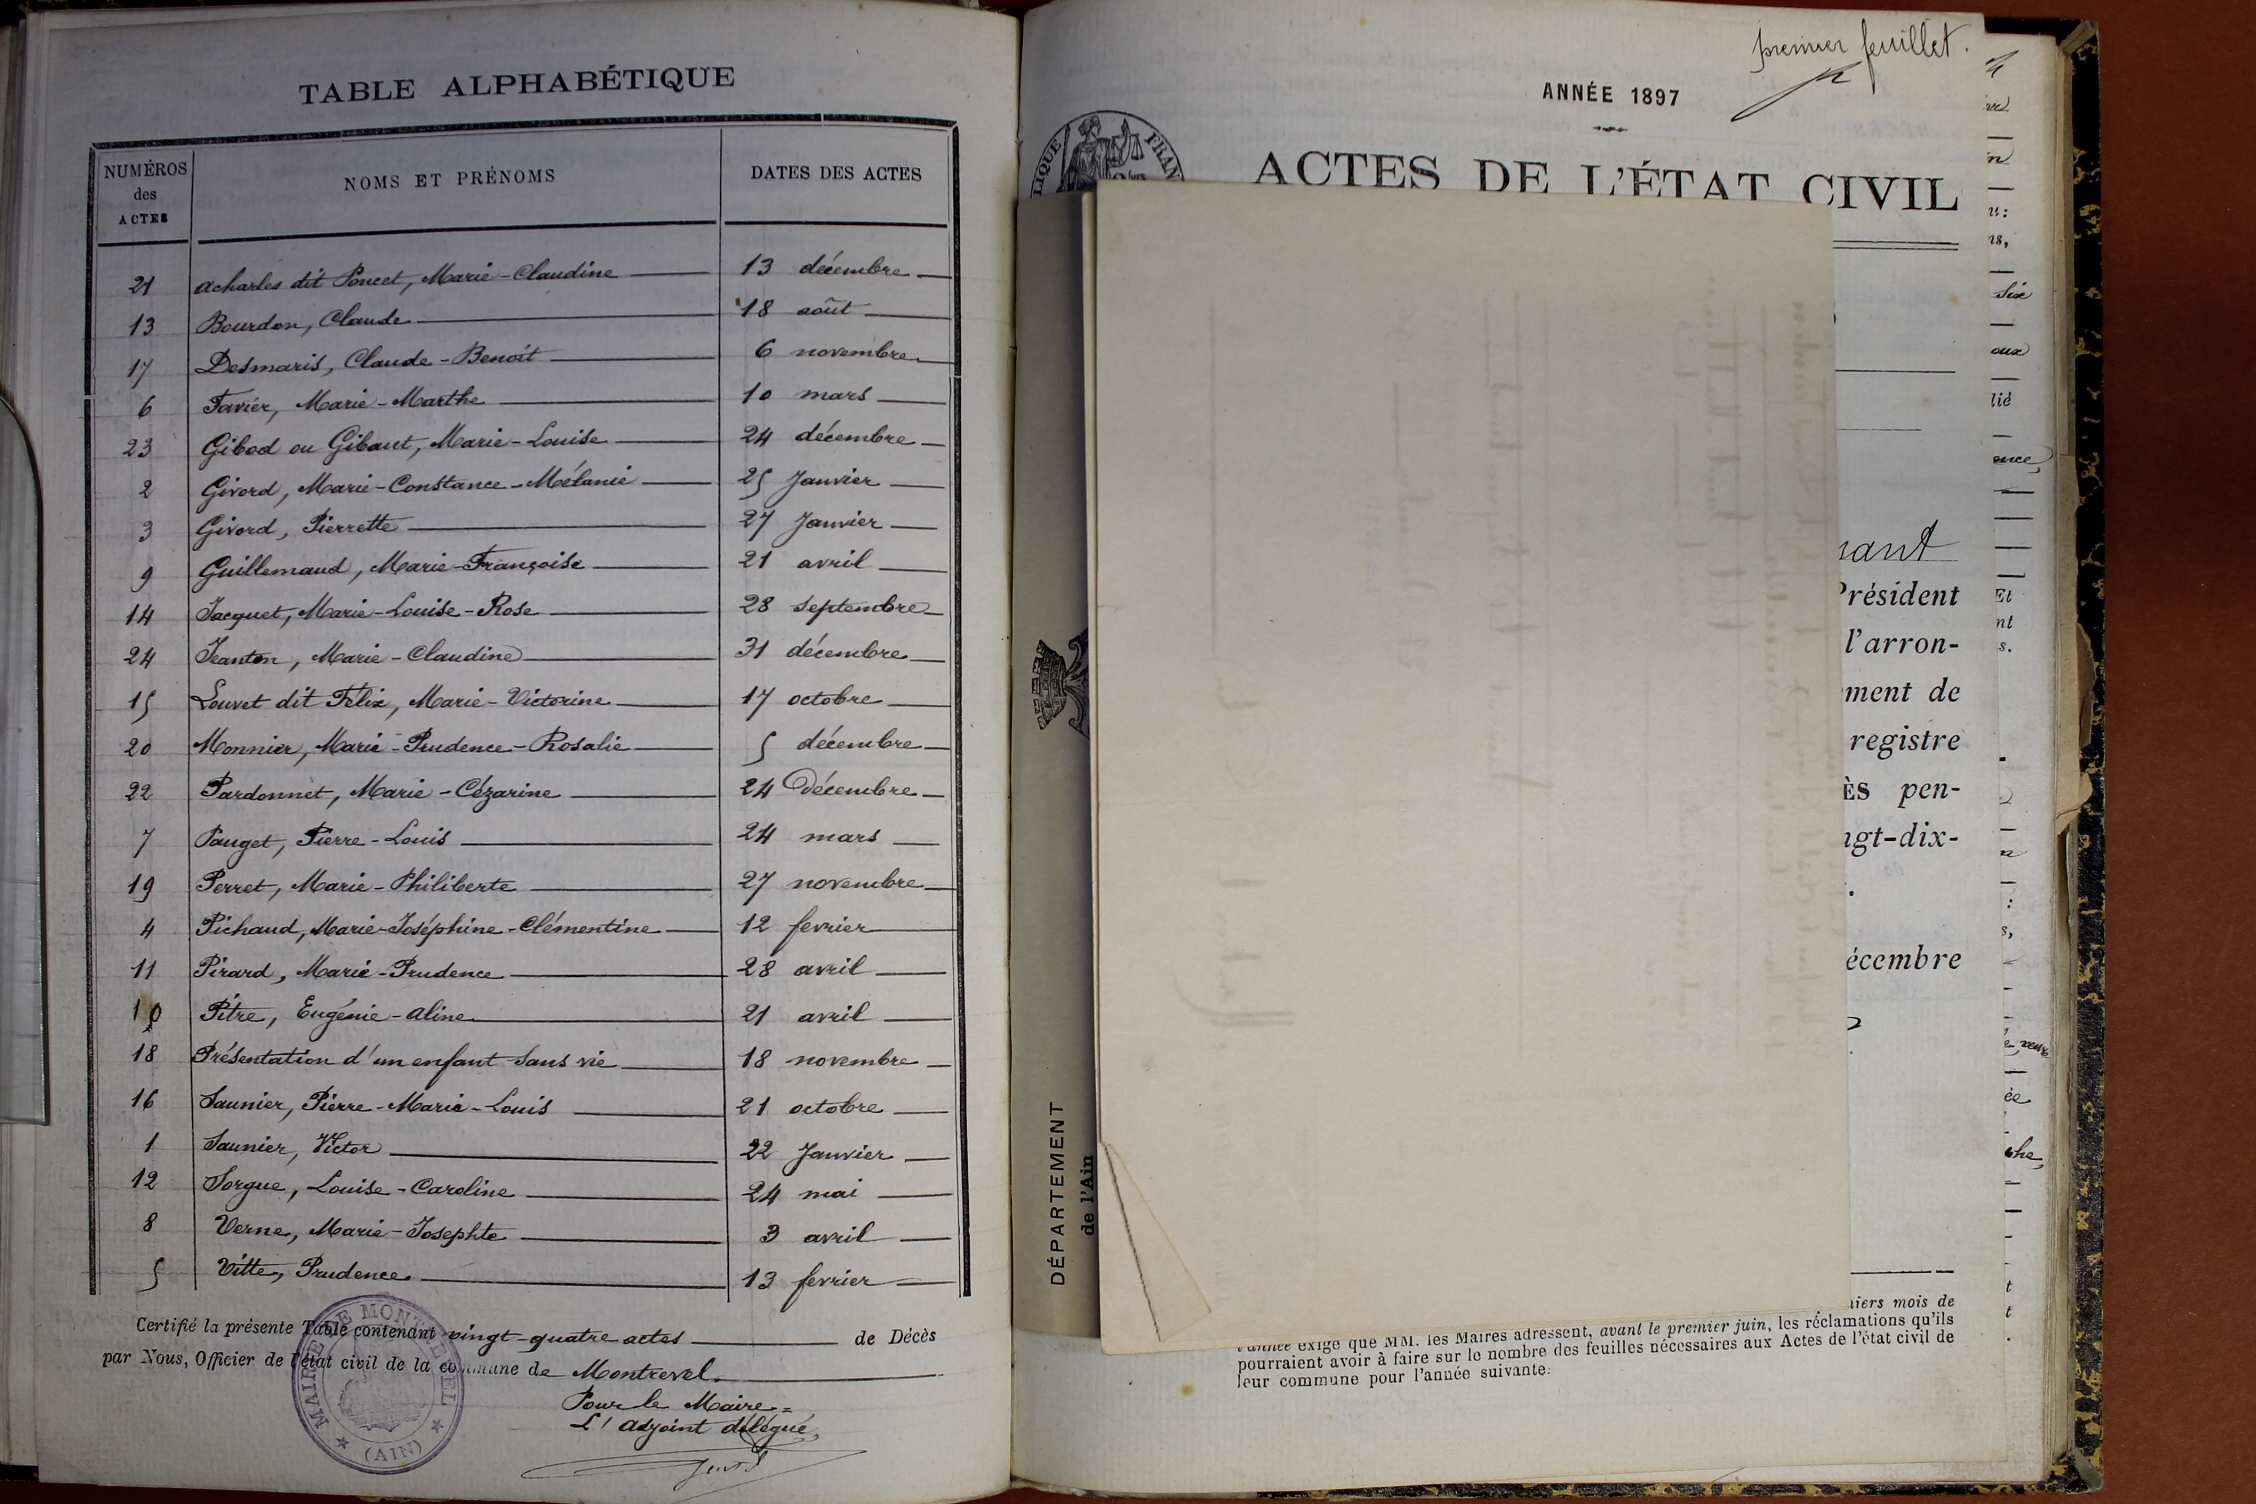 TABLE ALPHABÉTIQUE
NUMÉROS des ACTES NOMS ET PRÉNOMS DATES DES ACTES
21 Acharles dit Poncet, Marie-Claudine 13 décembre
13 Bourdon, Claude 18 août
17 Desmaris, Claude-Benoît 6 novembre
6 Favier, Marie-Marthe 10 mars
23 Gibod ou Gibaut, Marie-Louise 24 décembre
2 Givord, Marie-Constance-Mélanie 25 Janvier
3 Givord, Pierrette 27 Janvier
9 Guillemaud, Marie-Françoise 21 avril
14 Jacquet, Marie-Louise-Rose 28 septembre
24 Jeanton, Marie-Claudine 31 décembre
15 Louvet dit Félix, Marie-Victorine 17 octobre
20 Monnier, Marie-Prudence-Rosalie 5 décembre
22 Pardonnet, Marie-Cézarine 24 Décembre
7 Pauget, Pierre-Louis 24 mars
19 Perret, Marie-Philiberte 27 novembre
4 Pichaud, Marie-Joséphine-Clémentine 12 fevrier
11 Pirard, Marie-Prudence 28 avril
10 Pitre, Eugénie-Aline 21 avril
18 Présentation d'un enfant sans vie 18 novembre
16 Saunier, Pierre-Marie-Louis 21 octobre
1 Saunier, Victor 22 Janvier
12 Sorgue, Louise-Caroline 24 mai
8 Verne, Marie-Josephte 3 avril
5 Vitte, Prudence 13 fevrier
Certifié la présente Table contenant vingt-quatre actes de Décès
par Nous, Officier de l'état civil de la commune de Montrevel.
Pour le Maire =
L'adjoint délégué,
MAIRIE DE MONTREVEL
(AIN)
premier feuillet.
ANNÉE 1897
LIQUE FRAN
ACTES DE L'ÉTAT CIVIL
nant
Président
l'arron-
ment de
registre
ÈS pen-
ngt-dix-
écembre
DÉPARTEMENT
de l'Ain
niers mois de
l'année exige que MM. les Maires adressent, avant le premier juin, les réclamations qu'ils
pourraient avoir à faire sur le nombre des feuilles nécessaires aux Actes de l'état civil de
leur commune pour l'année suivante.